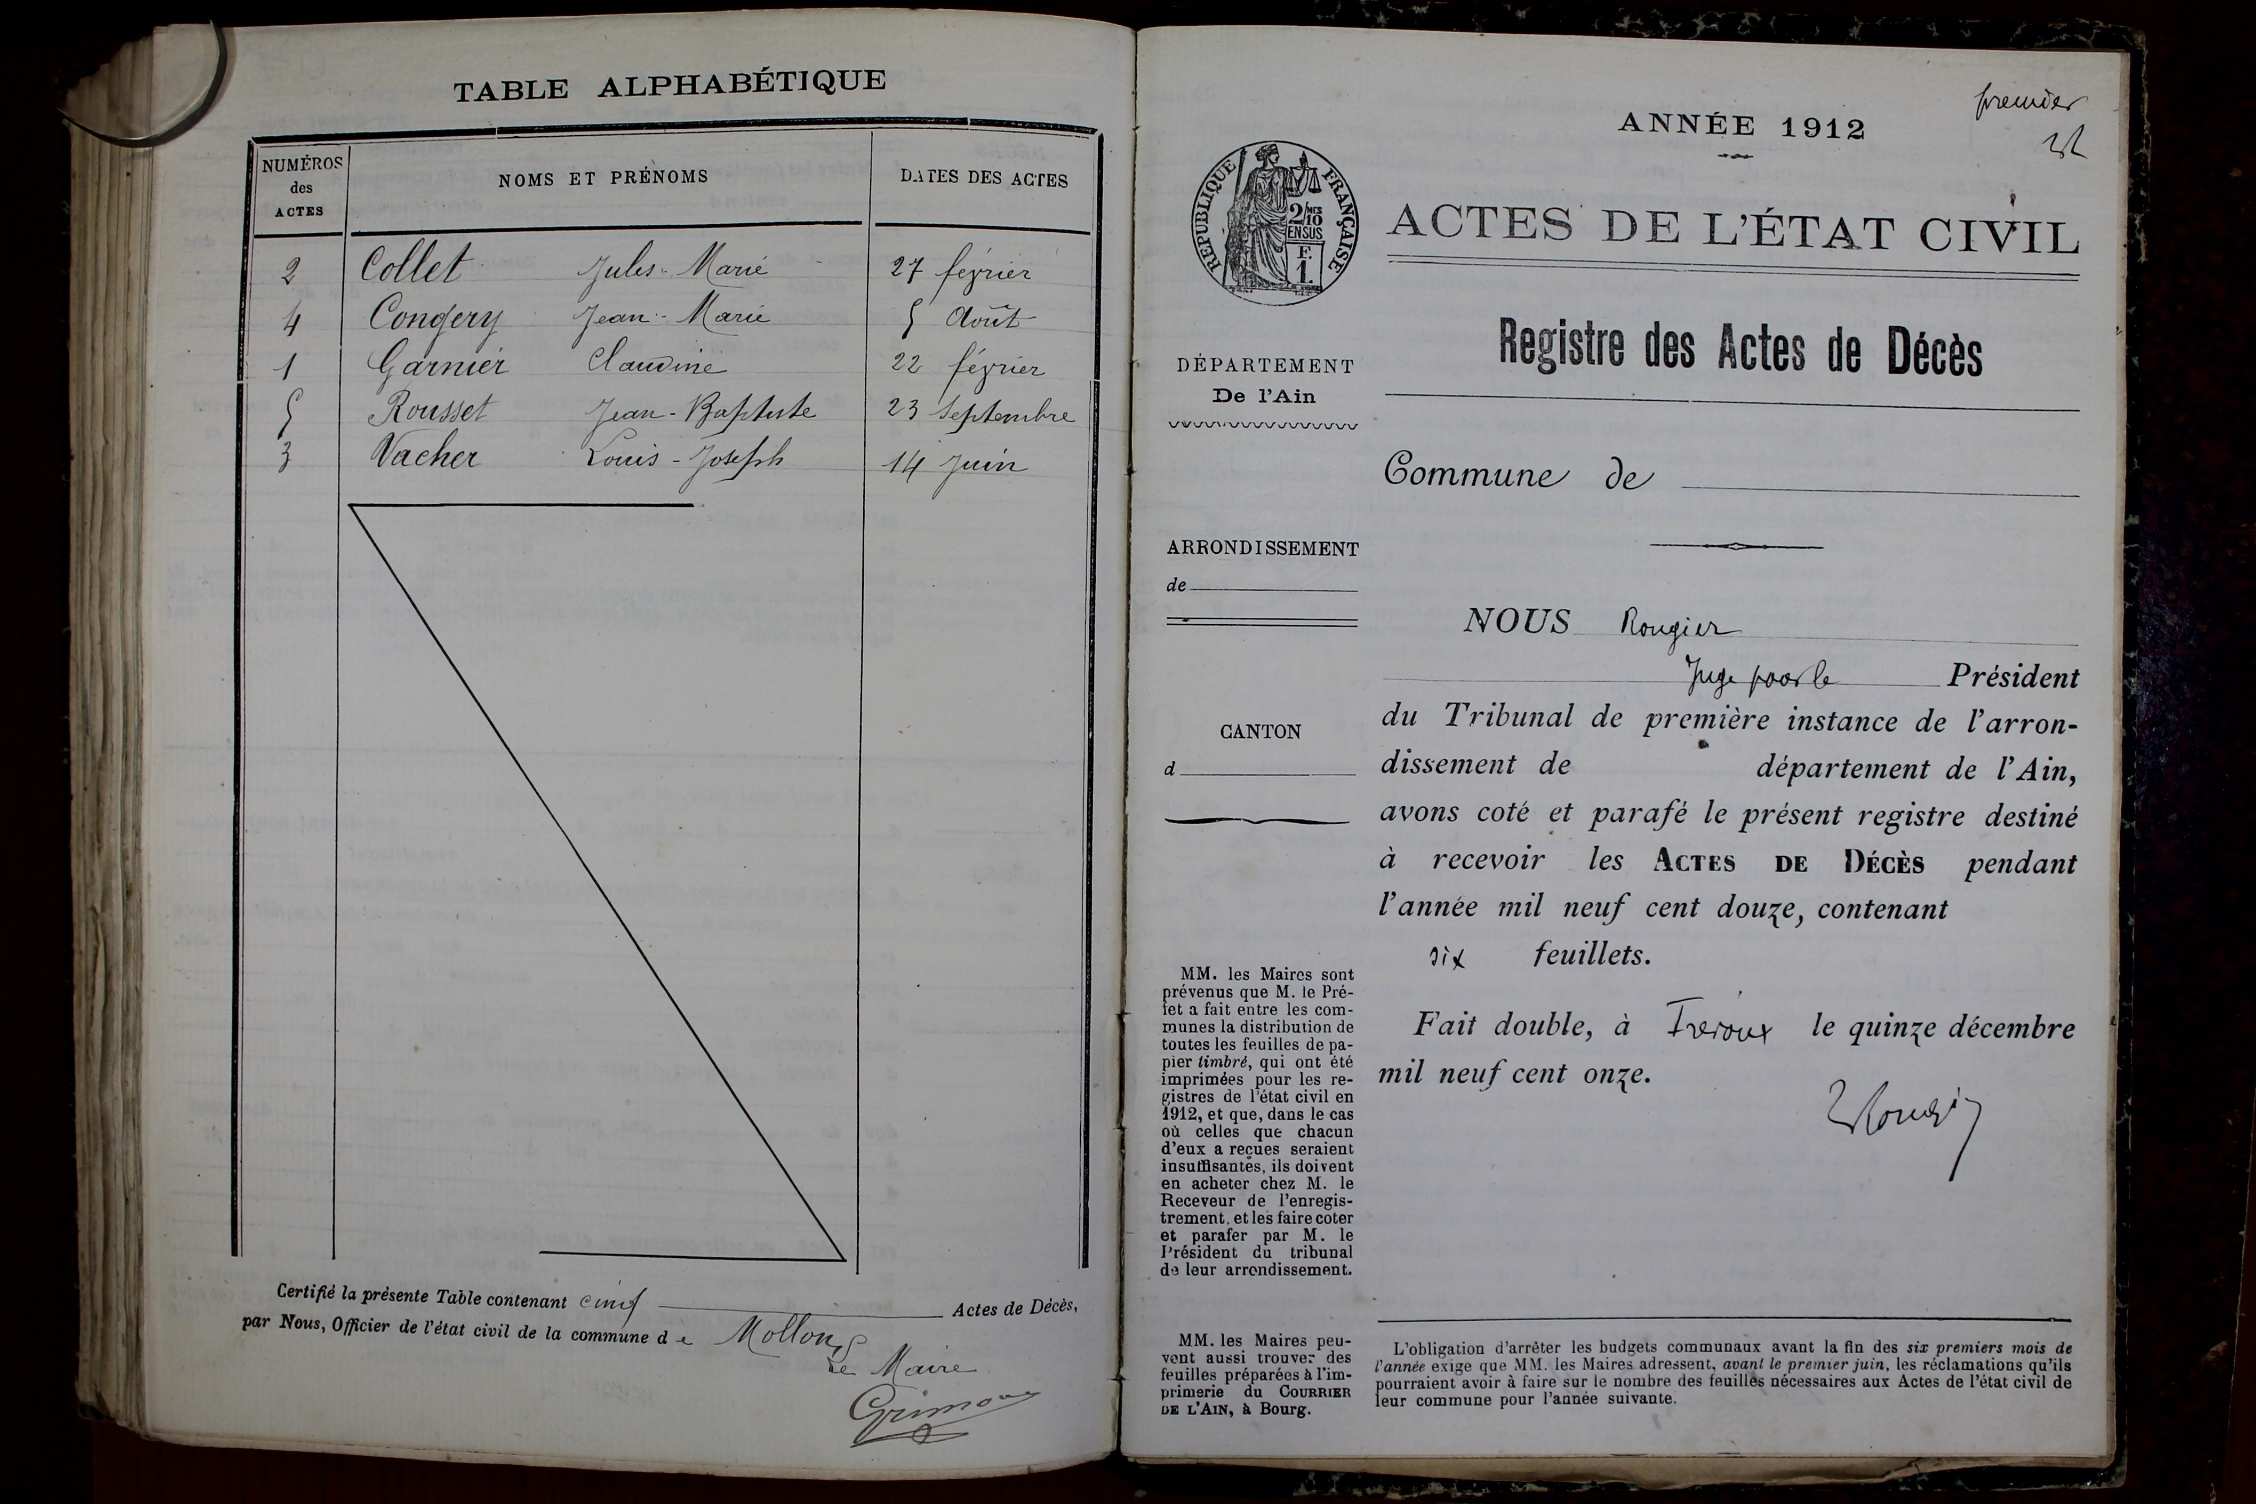 TABLE ALPHABÉTIQUE
NUMÉROS
des
ACTES
NOMS ET PRÉNOMS
DATES DES ACTES
2 Collet Jules-Marie 27 février
4 Congery Jean-Marie 5 Août
1 Garnier Claudine 22 février
5 Rousset Jean-Baptiste 23 Septembre
3 Vacher Louis-Joseph 14 Juin
Certifié la présente Table contenant cinq Actes de Décès,
par Nous, Officier de l'état civil de la commune de Mollon
Le Maire
premier
ANNÉE 1912
RÉPUBLIQUE FRANÇAISE
2/10 MES
EN SUS
F.
1.
ACTES DE L'ÉTAT CIVIL
Registre des Actes de Décès
DÉPARTEMENT
De l'Ain
Commune de
ARRONDISSEMENT
de
NOUS Rougier
Juge pour le Président
CANTON
d
du Tribunal de première instance de l'arron-
dissement de département de l'Ain,
avons coté et parafé le présent registre destiné
à recevoir les ACTES DE DÉCÈS pendant
l'année mil neuf cent douze, contenant
six feuillets.
Fait double, à Trévoux le quinze décembre
mil neuf cent onze.
MM. les Maires sont
prévenus que M. le Pré-
fet a fait entre les com-
munes la distribution de
toutes les feuilles de pa-
pier timbré, qui ont été
imprimées pour les re-
gistres de l'état civil en
1912, et que, dans le cas
où celles que chacun
d'eux a reçues seraient
insuffisantes, ils doivent
en acheter chez M. le
Receveur de l'enregis-
trement, et les faire coter
et parafer par M. le
Président du tribunal
de leur arrondissement.
MM. les Maires peu-
vent aussi trouver des
feuilles préparées à l'im-
primerie du COURRIER
DE L'AIN, à Bourg.
L'obligation d'arrêter les budgets communaux avant la fin des six premiers mois de
l'année exige que MM. les Maires adressent, avant le premier juin, les réclamations qu'ils
pourraient avoir à faire sur le nombre des feuilles nécessaires aux Actes de l'état civil de
leur commune pour l'année suivante.